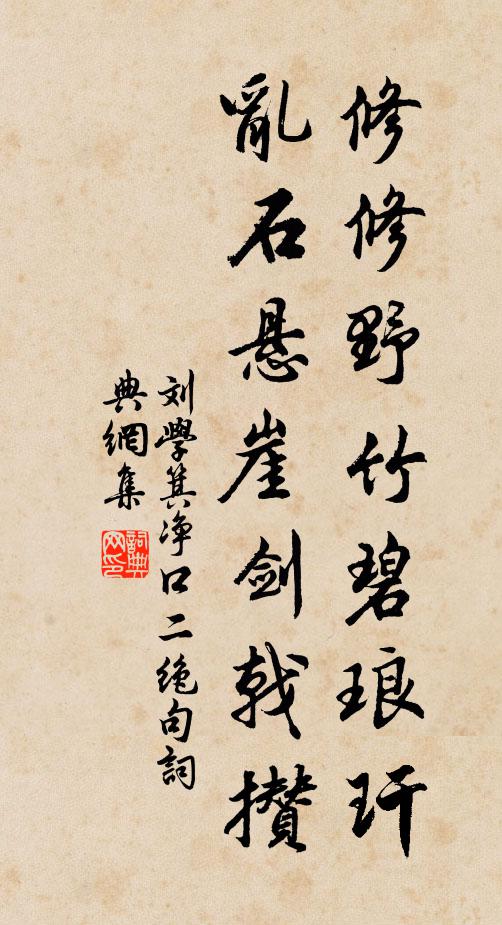 修修野竹碧琅玕
亂石悬崖劍戟攅
刘學箕净口二绝句詞
典網集
詞典
网印